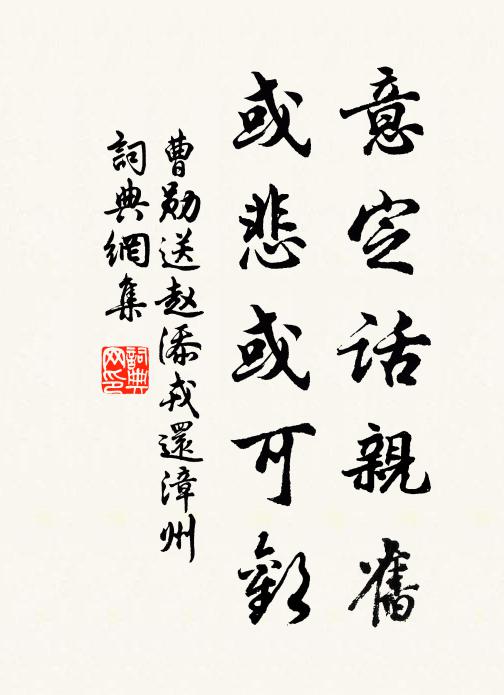 意定话親舊
或悲或可歡
曹勋送赵添戎還漳州
詞典網集
詞典网印